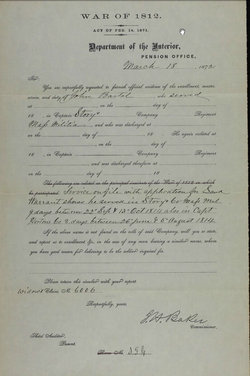 WAR OF 1812.
ACT OF FEB. 14, 1871.
Department of the Interior,
PENSION OFFICE,
March 18, 1872
Sir:
You are respectfully requested to furnish official evidence of the enrollment, muster,
service, and duty of John
who served
at, on the day of
18 in Captain Story's Company Regiment
Mass Militia and was discharged at
on the day of 18 He again enlisted at
on the day of
18 in Captain Company Regiment
and was discharged therefrom at
on the day of 18
The following are related as the principal incidents of the War of 1812 in which
he participated: Service on file with application for Land
Warrant shows he served in Story's Co Mass Mil
9 days between 22 Sept & 13 Oct 1814 also in Capt
Co 3 days between 28 June & 6 August 1814
If the above name is not found on the rolls of said Company, will you so state,
and report as to enrollment &c., in the case of any man bearing a similar name, whom
you have good reason for believing to be the soldier inquired for.
When return this circular with your report.
Widows Claim No 6006
Respectfully, yours,
J.H. Baker
Commissioner.
Third Auditor,
Present.